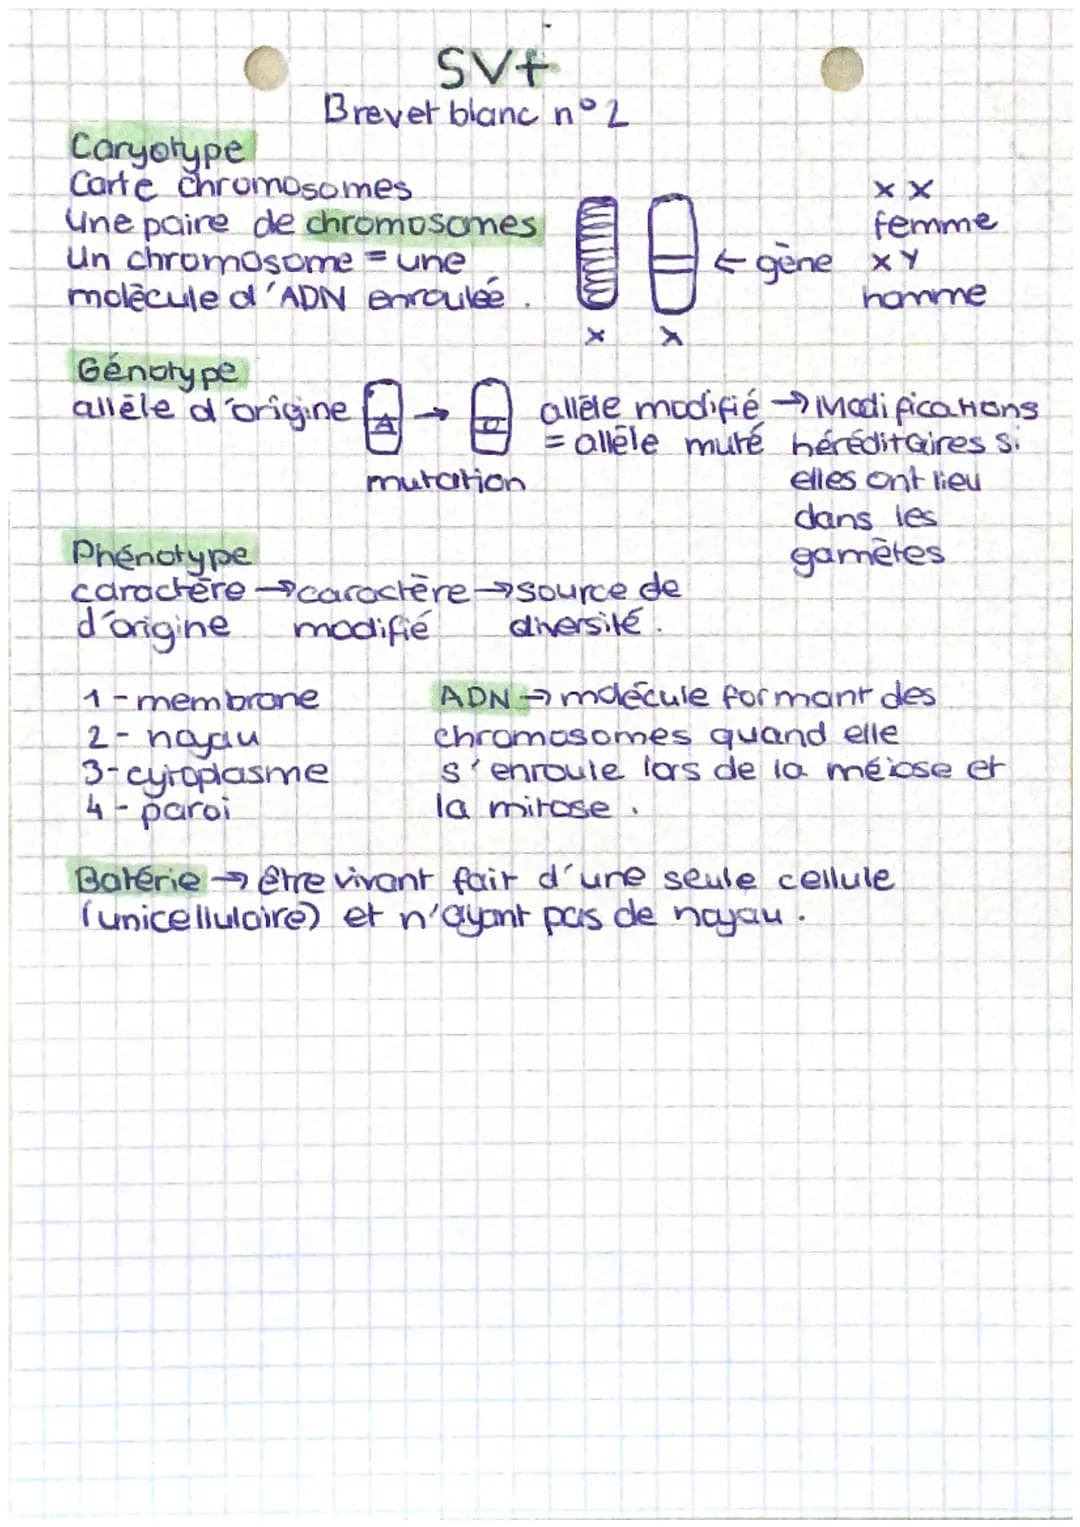 SVt
Brevet blanc n°2
Caryotype
Carte chromosomes
Une paire de chromosomes
Un chromosome = une
molécule d'ADN enroulée.
x x
← gène
x x
femme
x y
homme
Génotype
allèle d'origine A → a allèle modifié → Modifications
= allèle muté héréditaires si
mutation elles ont lieu
dans les
gamètes
Phénotype
caractère → caractère → source de
d'origine modifié diversité.
1 - membrane
2 - noyau
3 - cytoplasme
4 - paroi
ADN → molécule formant des
chromosomes quand elle
s'enroule lors de la méiose et
la mitose.
Batérie → être vivant fait d'une seule cellule
(unicellulaire) et n'ayant pas de noyau.